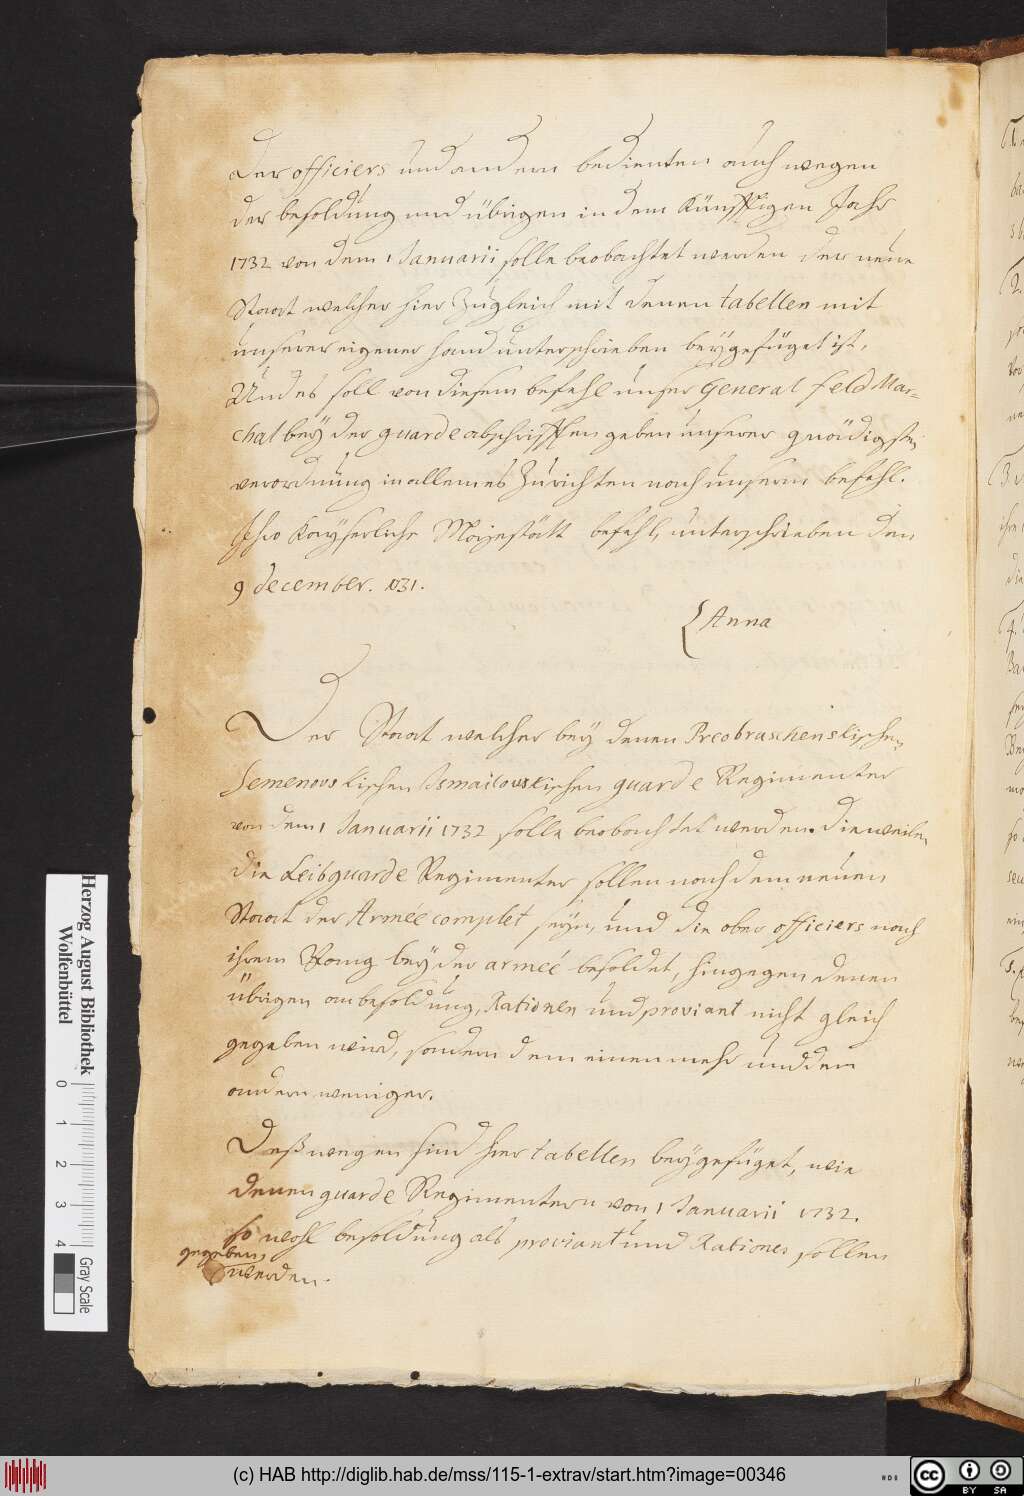 der officiers und andern bedienten auch wegen
der besoldung und übrigen in dem Künfftigen Jahr
1732 von dem 1 Januarii solle beobachtet werden der neüe
Staat welcher hier zugleich mit denen tabellen mit
unserer eigener hand unterschrieben beÿgefüget ist,
Und es soll von diesem befehl unser General Feld Mar-
chal beÿ der guarde abschrifften geben unserer gnädigsten
verordnung in allem es zurichten nach unserm befehl.
Ihro Kaÿserliche Majestätt befehl, unterschrieben den
9 december. 1731.
Anna
Der Staat welcher bey denen Preobraschenskischen,
Semenovskischen Ismailovskischen guarde Regimenter
von dem 1 Januarii 1732 solle beobachtet werden. dieweilen
die Leibguarde Regimenter sollen nach dem neüen
Staat der Armée complet seyn, und die ober officiers nach
ihrem Rang beÿ der armeé besoldet, hingegen denen
übrigen an besoldung, Rationen und proviant nicht gleich
gegeben wird, sondern dem einen mehr und den
andern weniger.
Deßwegen sind hier tabellen beÿgefüget, wie
denen guarde Regimentern von 1 Januarii 1732.
so wohl besoldung als proviant und Rationes sollen
gegeben
werden.
Herzog August Bibliothek
Wolfenbüttel
0 1 2 3 4
Gray Scale
(c) HAB http://diglib.hab.de/mss/115-1-extrav/start.htm?image=00346
cc BY SA